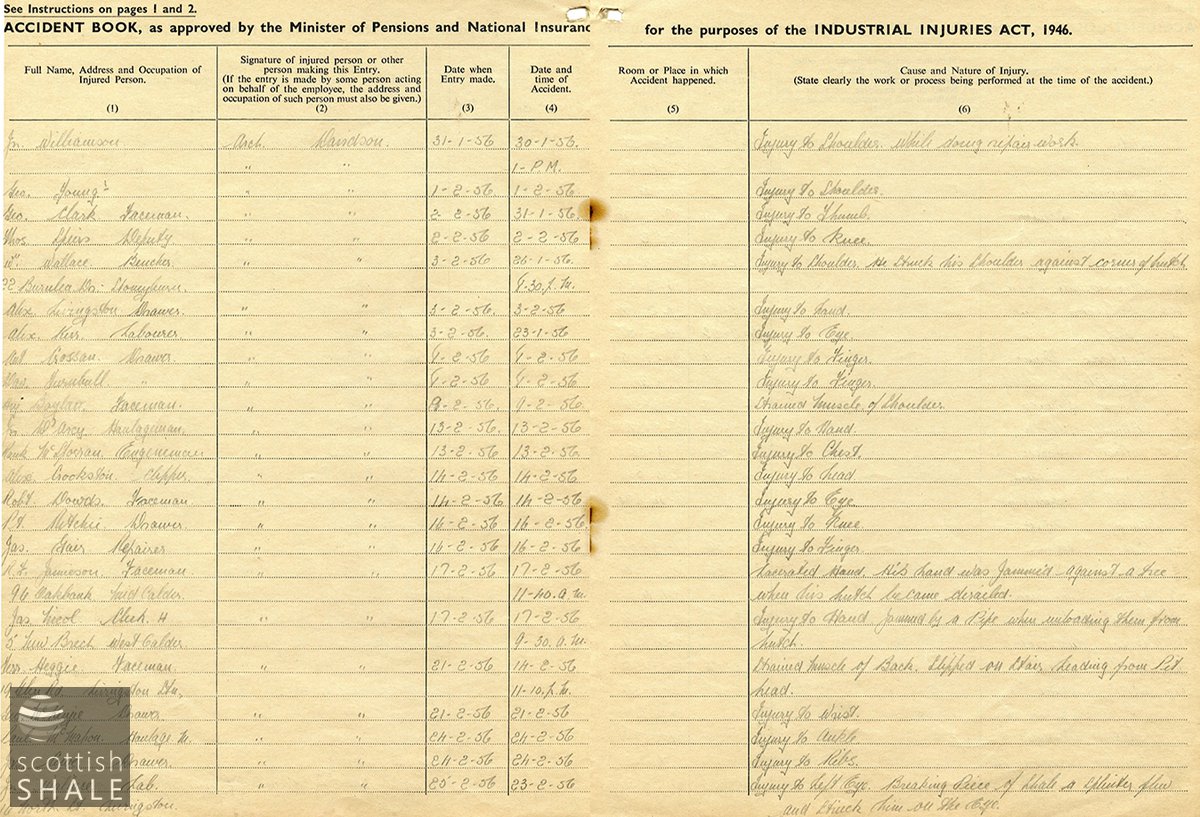 See Instructions on pages 1 and 2.
ACCIDENT BOOK, as approved by the Minister of Pensions and National Insurance for the purposes of the INDUSTRIAL INJURIES ACT, 1946.
Full Name, Address and Occupation of Injured Person.
(1)
Signature of injured person or other person making this Entry.
(If the entry is made by some person acting on behalf of the employee, the address and occupation of such person must also be given.)
(2)
Date when Entry made.
(3)
Date and time of Accident.
(4)
Room or Place in which Accident happened.
(5)
Cause and Nature of Injury.
(State clearly the work or process being performed at the time of the accident.)
(6)
Jn. Williamson Arch. Davidson. 31-1-56 30-1-56 Injury to Shoulder. While doing repair work.
" " 1-P.M.
Geo. Young " " 1-2-56 1-2-56 Injury to Shoulder.
Geo. Clark Faceman. " " 2-2-56 31-1-56 Injury to Thumb.
Thos. Speirs Deputy " " 2-2-56 2-2-56 Injury to Knee.
Wallace Bencher. " " 3-2-56 26-1-56 Injury to Shoulder. He Struck his Shoulder against corner of hutch
22 Burnlea Dr. Stoneyburn. 9-30.p.m.
Alex. Livingston Drawer. " " 3-2-56. 3-2-56 Injury to hand.
Alex. Kerr Labourer " " 3-2-56 23-1-56 Injury to Eye.
Drawer. " " -2-56 -2-56 Injury to Finger.
Turnbull " " " -2-56 -2-56 Injury to Finger.
Boylan Faceman. " " -2-56. 9-2-56 Strained Muscle of Shoulder.
Jn. McArcy Haulageman. " " 13-2-56 13-2-56 Injury to Hand.
Frank Engineman " " 13-2-56 13-2-56 Injury to Chest.
Alex Crookston Clipper " " 14-2-56 14-2-56 Injury to head
Robt. Dowds. Faceman " " 14-2-56 14-2-56 Injury to Eye.
Pt. Mitchie Drawer " " 16-2-56 16-2-56. Injury to Knee
Jas. Gair Repairer " " 16-2-56 16-2-56 Injury to Finger
Jamieson. Faceman " 17-2-56 17-2-56 Lacerated Hand. His hand was Jammed against a tree
96 Oakbank Mid Calder 11-40.a.m when his hutch became derailed.
Jas. Nicol Clerk H " " 17-2-56 17-2-56 Injury to Hand. Jammed by a Pipe when unloading them from
5 New Breck West Calder 9-30.a.m. hutch.
Heggie Faceman. " " 21-2-56 14-2-56 Strained Muscle of Back. Slipped on Stair leading from Pit
Livingston Stn. 11-10.p.m. head.
Drawer " " 21-2-56 21-2-56 Injury to Wrist.
McMahon Haulage M. " " 24-2-56 24-2-56 Injury to Ankle
Drawer " " 24-2-56 24-2-56 Injury to Ribs.
Lab. " " 25-2-56 23-2-56 Injury to Left Eye. Breaking Piece of Shale a Splinter flew
North St. Livingston. and Struck him on the Eye.
scottish
SHALE